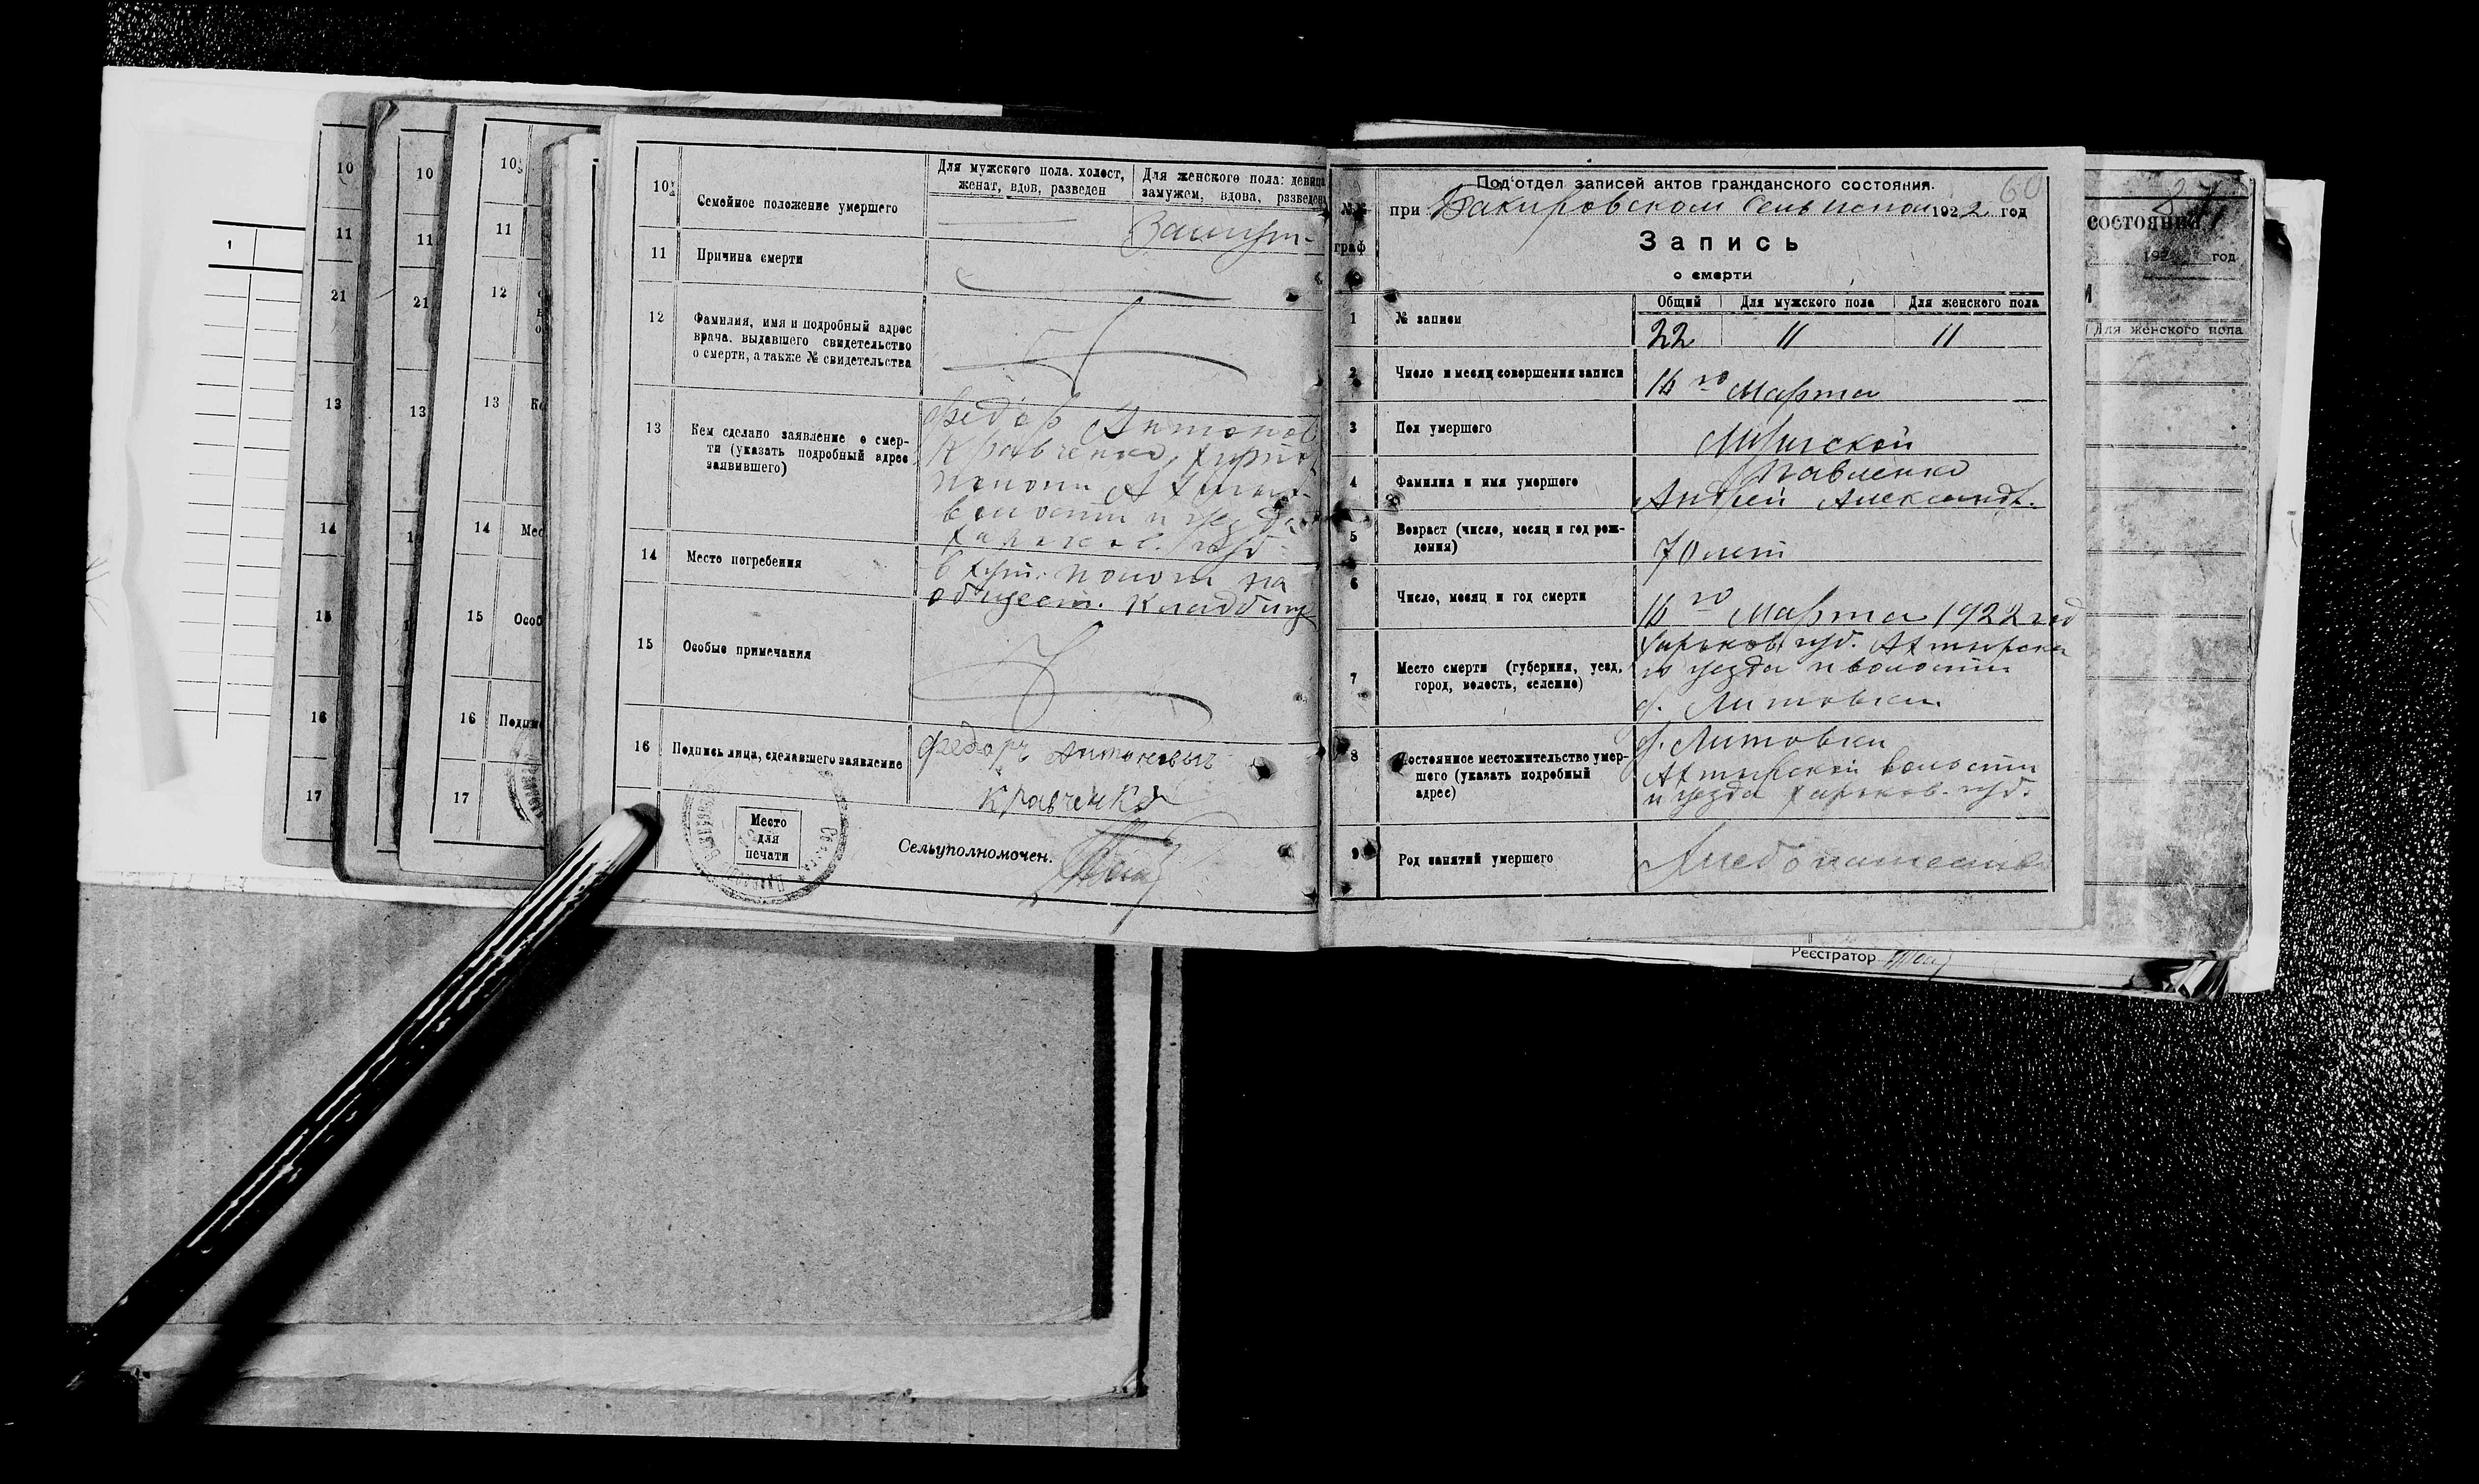 10
11
21
13
14
15
16
17
10
11
21
13
10
11
12
13
14 Мес
15 Особ
16
17
1
10
Семейное положение умершего
Для мужского пола. холост,
женат, вдов, разведен
Для женского пола: девица
замужем, вдова, разведен
11 Причина смерти
12 Фамилия, имя и подробный адрес
врача, выдавшего свидетельство
о смерти, а также № свидетельства
13 Кем сделано заявление о смер-
ти (указать подробный адрес
заявившего)
Федор Антонов
Кравченко, хутор
волости и уезда
Харьков. губ.
14 Место погребения
в хут. на
общест. кладбищ
15 Особые примечания
16 Подпись лица, сделавшего заявление
Федоръ Антоновыч
Кравченко
Место
для
печати
Сельуполномочен.
Под'отдел записей актов гражданского состояния.
60
при Бакировском 1922 год
№№
граф
Запись
о смерти
1 № записи
Общий Для мужского пола Для женского пола
22 " "
2 Число и месяц совершения записи
16го Марта
3 Пол умершего
Мужской
4 Фамилия и имя умершего
Павленко
Андрей Александр.
5 Возраст (число, месяц и год рож-
дения)
70 лет
6 Число, месяц и год смерти
16го Марта 1922 год
7 Место смерти (губерния, уезд,
город, волость, селение)
Харьков губ. Ахтырска
го уезда и волости
д. Литовки
8 Постоянное местожительство умер-
шего (указать подробный
адрес)
д. Литовки
Ахтырской волости
и уезда Харьков. губ.
9 Род занятий умершего
Хлебопашество
87
состояния
192 год
Для женского пола
Реєстратор